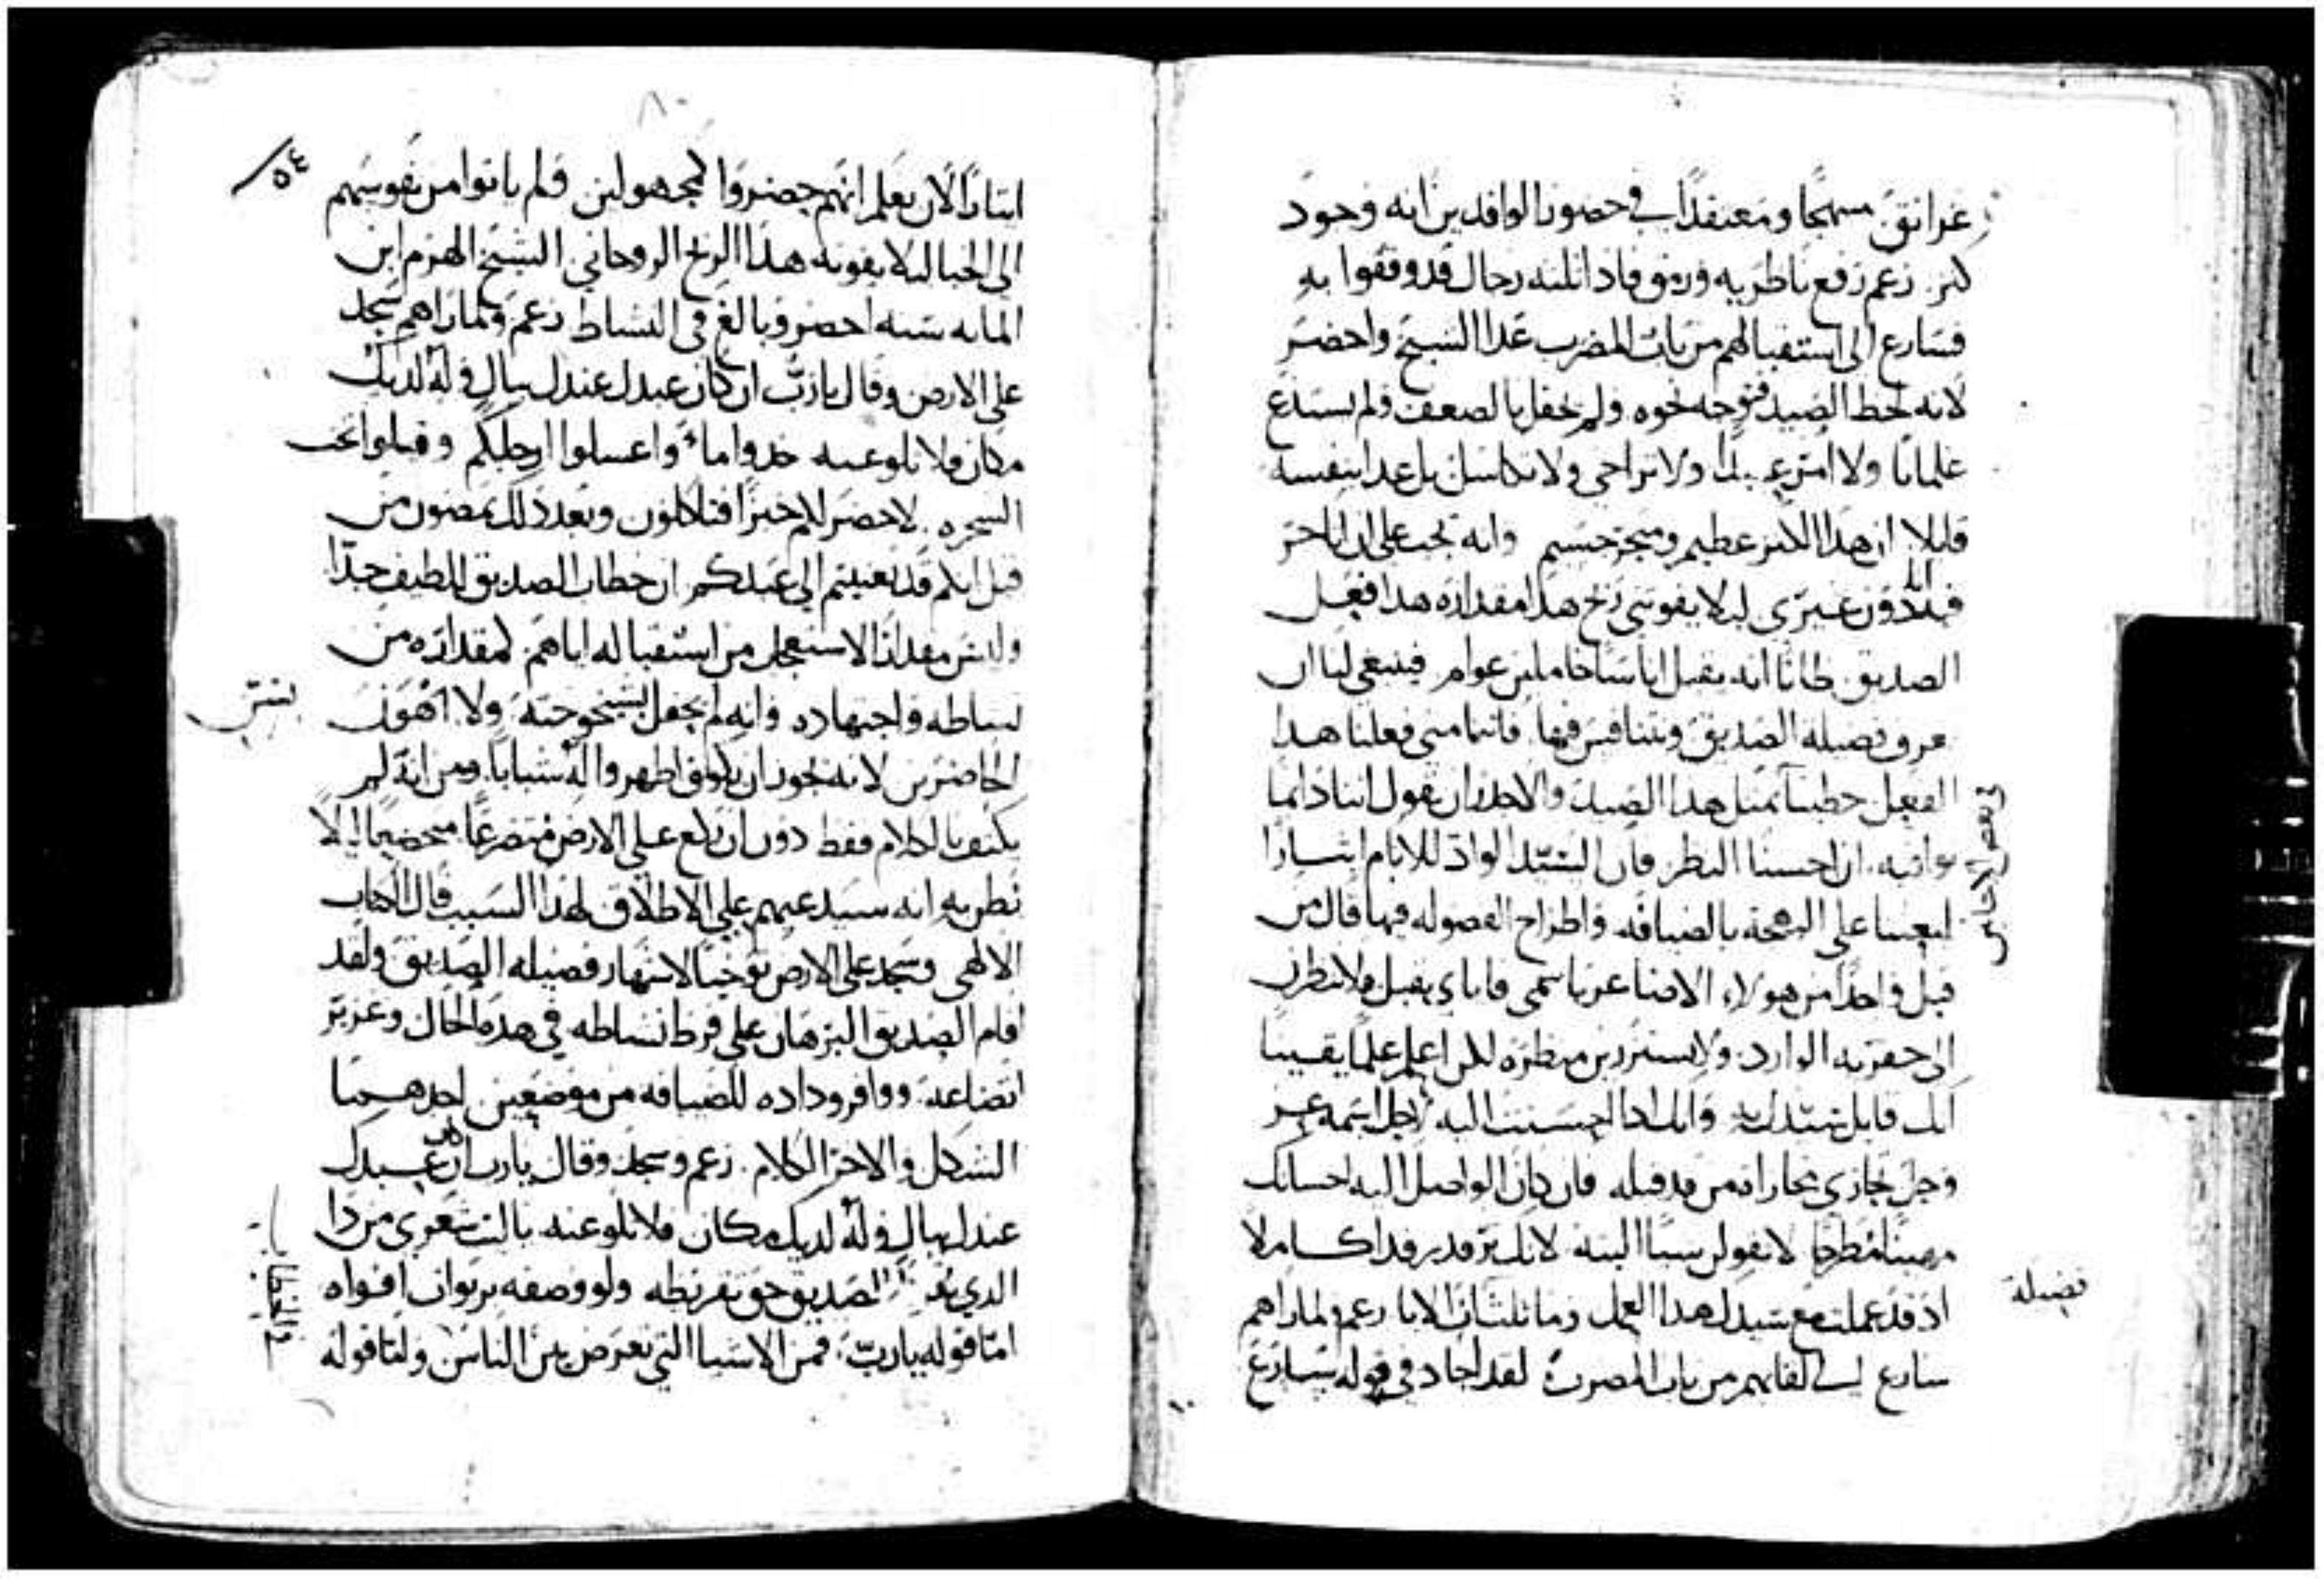 غرانق مبتهجًا ومعتقدًا في حضور الوافدين انه وجود
كنز زعم رفع ناظريه ورمق فاذا ثلثه رجال قد وقفوا به
فسارع الى استقبالهم من باب المضرب عدا الشيخ واحضر
لانه لحظ الصيد فتوجه نحوه ولم يحفل بالضعف ولم يستدع
غلمانًا ولا امتزعبدًا ولا تراخى ولا تكاسل بل عدا بنفسه
قايلا ان هذا الكنز عظيم ومتجر جسيم وانه يجب علي ان اباجر
فيه دون غيري ليلا يفوتني ربح هذا مقداره هذا فعل
الصديق ظانًا انه يقبل اناسًا خاملين عوام فينبغي لنا ان
نعرف فضيله الصديق ونتنافس فيها فاننا متى فعلنا هذا
الفعل حظينا بمثل هذا الصيد والاجدر ان نقول اننا دايما
نوافيه ان احسنا النظر فان السيد الواد للانام ايثارًا
لبعثنا على البهجة بالضيافه واطراح الفضوله فيها قال من
قبل واحدًا من هولاء الاصاغر باسمي فاياي يقبل فلا تنظرن
الى حقريه الوارد ولا تستزرين منظره لكن اعلم علمًا يقينا
انك قابل سيدك به وانك اذا احسنت اليه لاجل اسمه عز
وجل تجازى مجاراة من قد قبله فان كان الواصل اليه احسانك
مهينًا مطرحًا لا تقولن شيًا البته لانك تر قد رفدا كاملا
اذ قد عملت مع سيدك هذا العمل وما تلتاث الابا زعم ولما راهم
سارع الى لقايهم من باب المضرب لقد اجاد في قوله سارع
في بعض الاحايين
فضيلة
٨٠
٥٤
ايثارًا لان يعلم انهم حضروا كمجهولين فلم ياتوا من نفوسهم
الى الخبا ليلا يفوته هذا الربح الروحاني الشيخ الهرم ابن
المايه سنه احضر وبالغ في النشاط زعم ولما راهم سجد
على الارض وقال يا رب ان كان عبدك عندك ببال وله لديك
مكان فلا تلو عنه خذوا ماءً واغسلوا ارجلكم وقيلوا تحت
الشجره لاحضر لكم خبزًا فتاكلون وبعد ذلك تمضون من
قبل انكم قد تعنيتم الى عبدكم ان خطاب الصديق للطيف جدًا
وليس مقدار الاستعجال من استقباله اياهم كمقداره من
نشاطه واجتهاده وانه لم يحفل بشيخوخته ولا اهون
الحاضرين لانه يجوز ان يكونوا ظهروا له شبابا ومن انه لم
يكتف بالكلام فقط دون ان يقع على الارض متضرعًا متخضعًا ليلا
نظن به انه سيدعهم على الاطلاق لهذا السبب قال الكتاب
الالهي وسجد على الارض توخيًا لاشتهار فضيله الصديق ولقد
اقام الصديق البرهان على فرط نشاطه في هذه الحال وغزير
اتضاعه ووافر وداده للضيافه من موضعين احدهما
الشكل والاخر الكلام زعم وسجد وقال يا رب ان كان عبدك
عندك ببال وله لديك مكان فلا تلو عنه يا ليت شعري من ذا
الذي يقرظ الصديق حق تقريظه ولو وصفه بربوات افواه
اما قوله يا رب فمن الاشيا التي تعرض بين الناس واما قوله